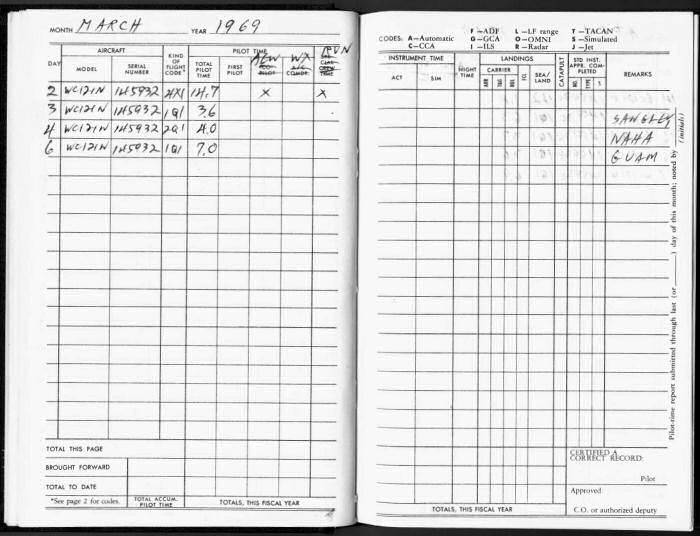 MONTH MARCH YEAR 1969
AIRCRAFT PILOT TIME
DAY MODEL SERIAL NUMBER KIND OF FLIGHT CODE* TOTAL PILOT TIME FIRST PILOT AEW CO-PILOT WX A/C COMDR.
2 WC121N 145932 4X1 14.7 X X
3 WC121N 145932 1Q1 3.6
4 WC121N 145932 2Q1 4.0
6 WC121N 145932 1Q1 7.0
TOTAL THIS PAGE
BROUGHT FORWARD
TOTAL TO DATE
*See page 2 for codes. TOTAL ACCUM. PILOT TIME TOTALS, THIS FISCAL YEAR
F—ADF L—LF range T—TACAN
CODES: A—Automatic G—GCA O—OMNI S—Simulated
C—CCA I—ILS R—Radar J—Jet
INSTRUMENT TIME NIGHT TIME LANDINGS CATAPULT STD INST. APPR. COMPLETED REMARKS
ACT SIM CARRIER ARR T&G BOL FCL SEA/LAND NO. TYPE
SANGLEY
NAHA
GUAM
Pilot-time report submitted through last (or ____) day of this month; noted by ____ (initials)
CERTIFIED A CORRECT RECORD:
Pilot
Approved:
TOTALS, THIS FISCAL YEAR C.O. or authorized deputy